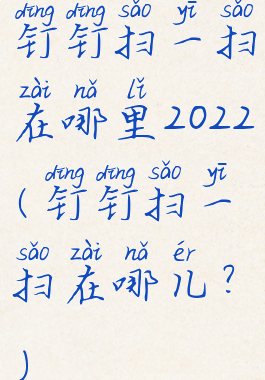 dīng dīng sǎo yī sǎo
钉钉扫一扫
zài nǎ lǐ
在哪里2022
dīng dīng sǎo yī
(钉钉扫一
sǎo zài nǎ ér
扫在哪儿?
)